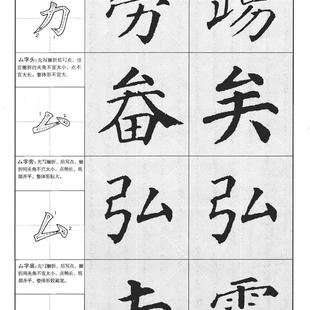 力
劳
1
2
厶字头：先写撇折后写点，注意撇折的夹角不宜太小，点不宜太长。整体形不宜大。
1
2
厶
畚
矣
厶字旁：先写撇折，后写点，撇折间夹角不宜太小，点稍长，底部齐平，整体形较大。
1
2
厶
弘
弘
厶字底：先写撇折，后写点，撇折间夹角不宜太小，点稍长，整体形较扁宽。